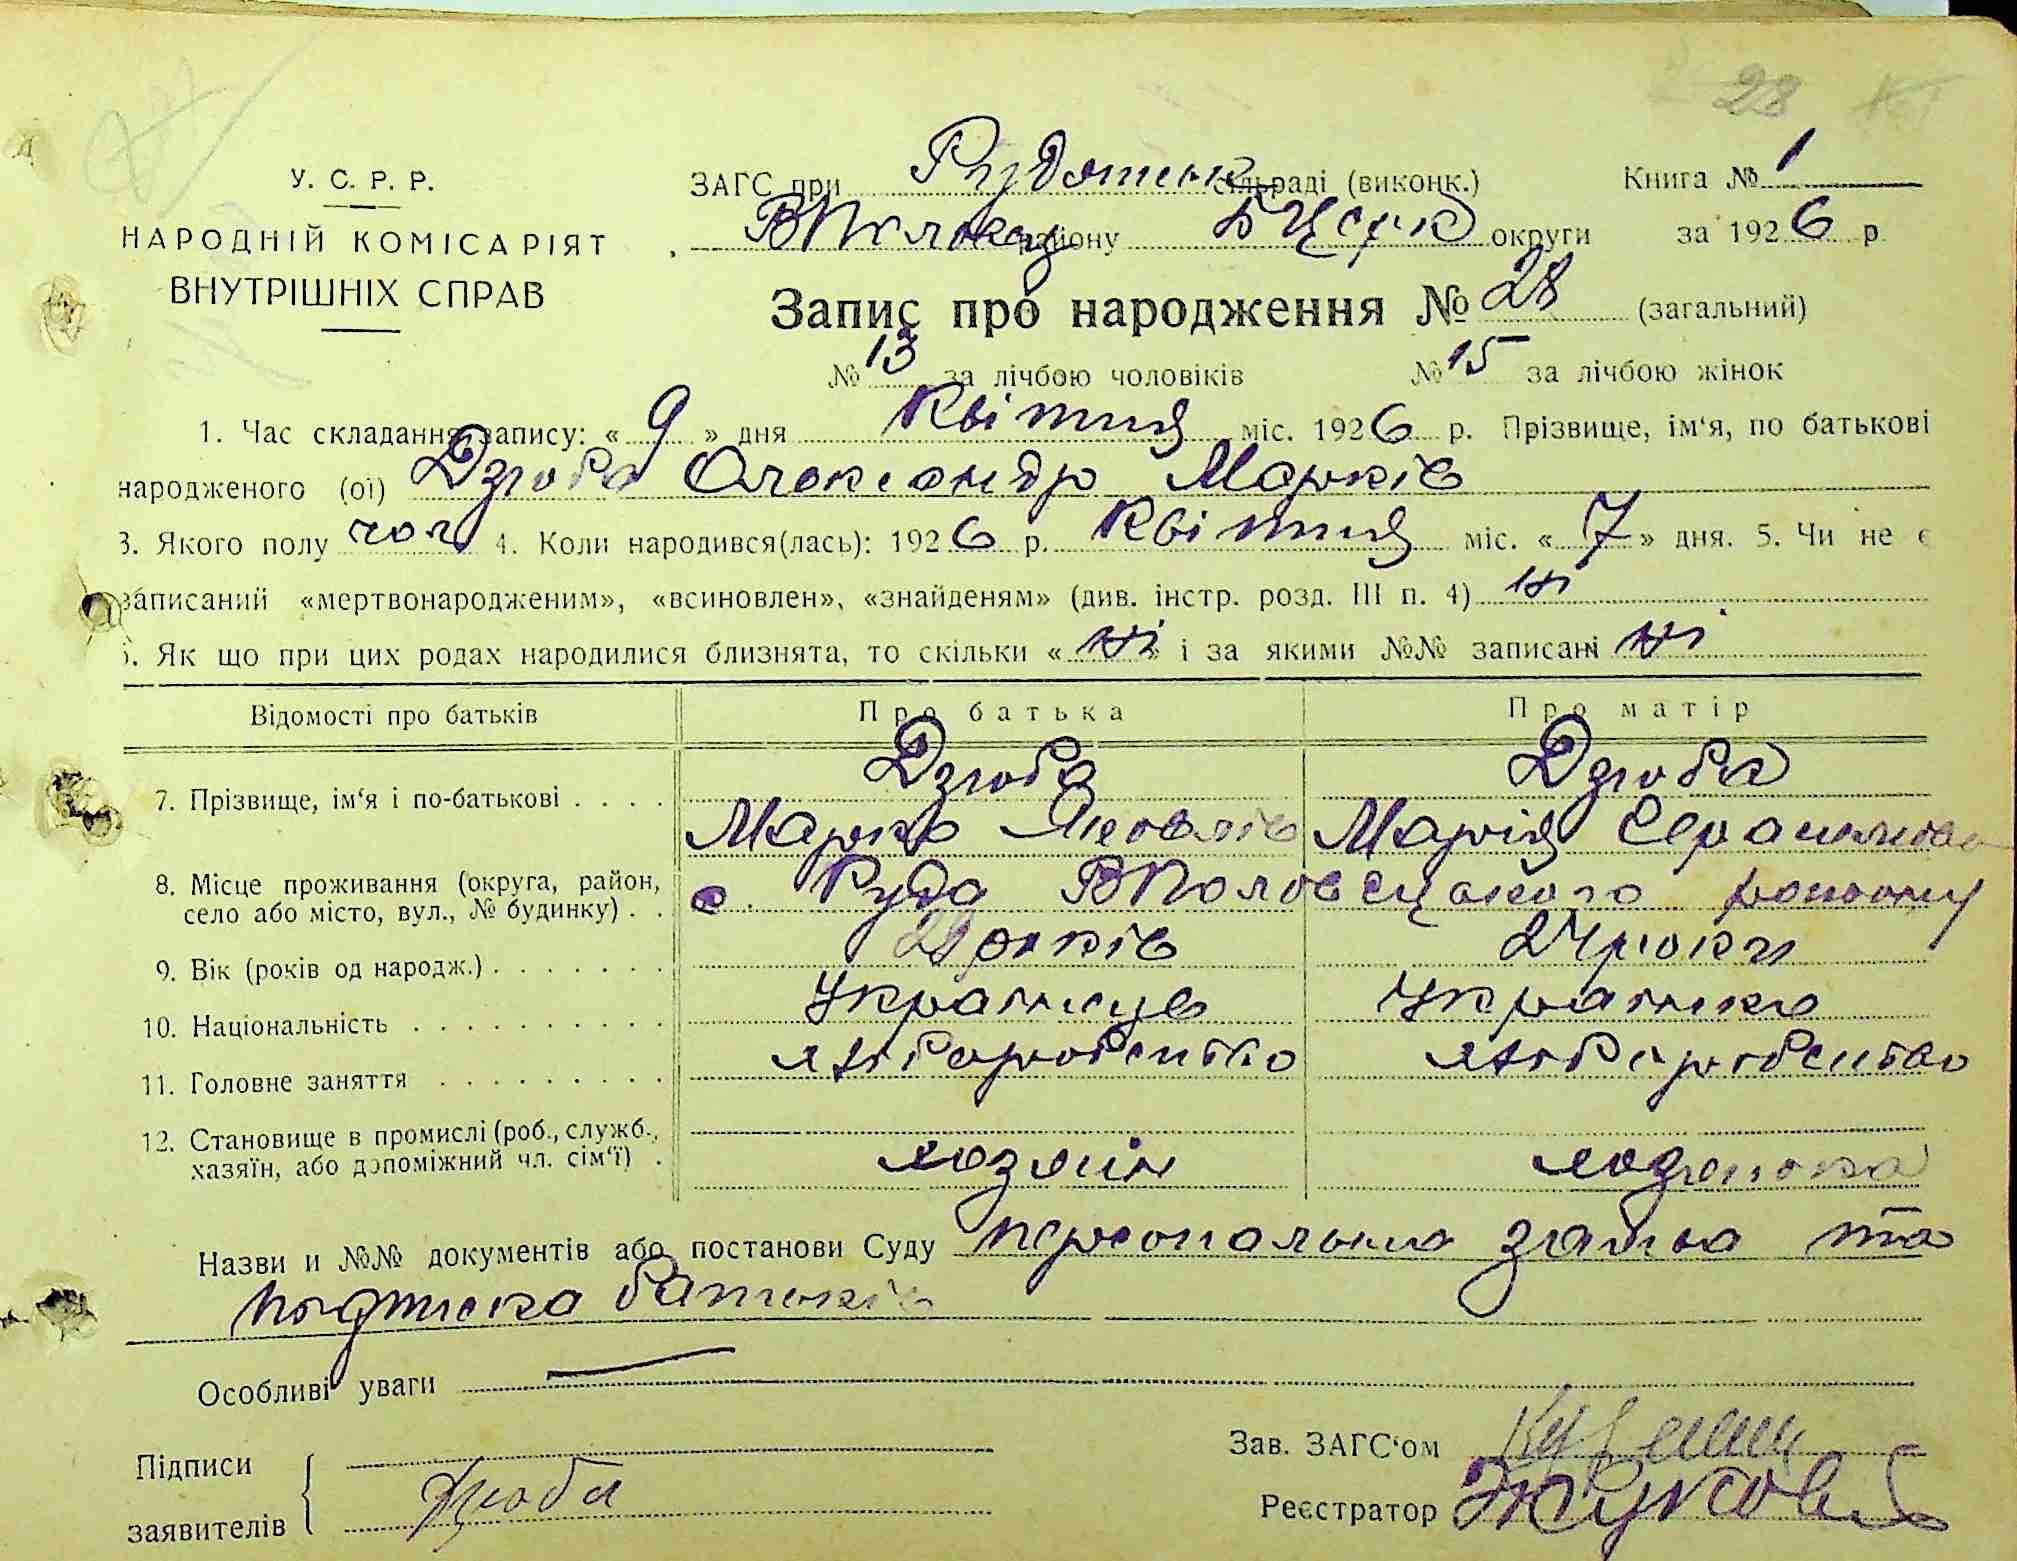 28
У. С. Р. Р.
НАРОДНІЙ КОМІСАРІЯТ
ВНУТРІШНІХ СПРАВ
ЗАГС при Рудянськ сільраді (виконк.) Книга № 1
району БЦерк округи за 1926 р
Запис про народження № 28 (загальний)
№ 13 за лічбою чоловіків № 15 за лічбою жінок
1. Час складання запису: « 9 » дня Квітня міс. 1926 р. Прізвище, ім'я, по батькові
народженого (ої) Дзюба Олександр Марків
3. Якого полу чол 4. Коли народився(лась): 1926 р. Квітня міс. « 7 » дня. 5. Чи не є
записаний «мертвонародженим», «всиновлен», «знайденям» (див. інстр. розд. III п. 4) ні
Як що при цих родах народилися близнята, то скільки « ні » і за якими №№ записані ні
Відомості про батьків Про батька Про матір
7. Прізвище, ім'я і по-батькові Дзюба Дзюба
Марко Яковлів Марія
8. Місце проживання (округа, район, село або місто, вул., № будинку) с. Руда ВПоловецького району
9. Вік (років од народж.) років 24 роки
10. Національність Українець Українка
11. Головне заняття хліборобство хліборобство
12. Становище в промислі (роб., служб., хазяїн, або допоміжний чл. сім'ї) хозяїн хозяйка
Назви и №№ документів або постанови Суду персональна заява та
подписка батьків
Особливі уваги
Підписи заявителів Дзюба
Зав. ЗАГС'ом
Реєстратор